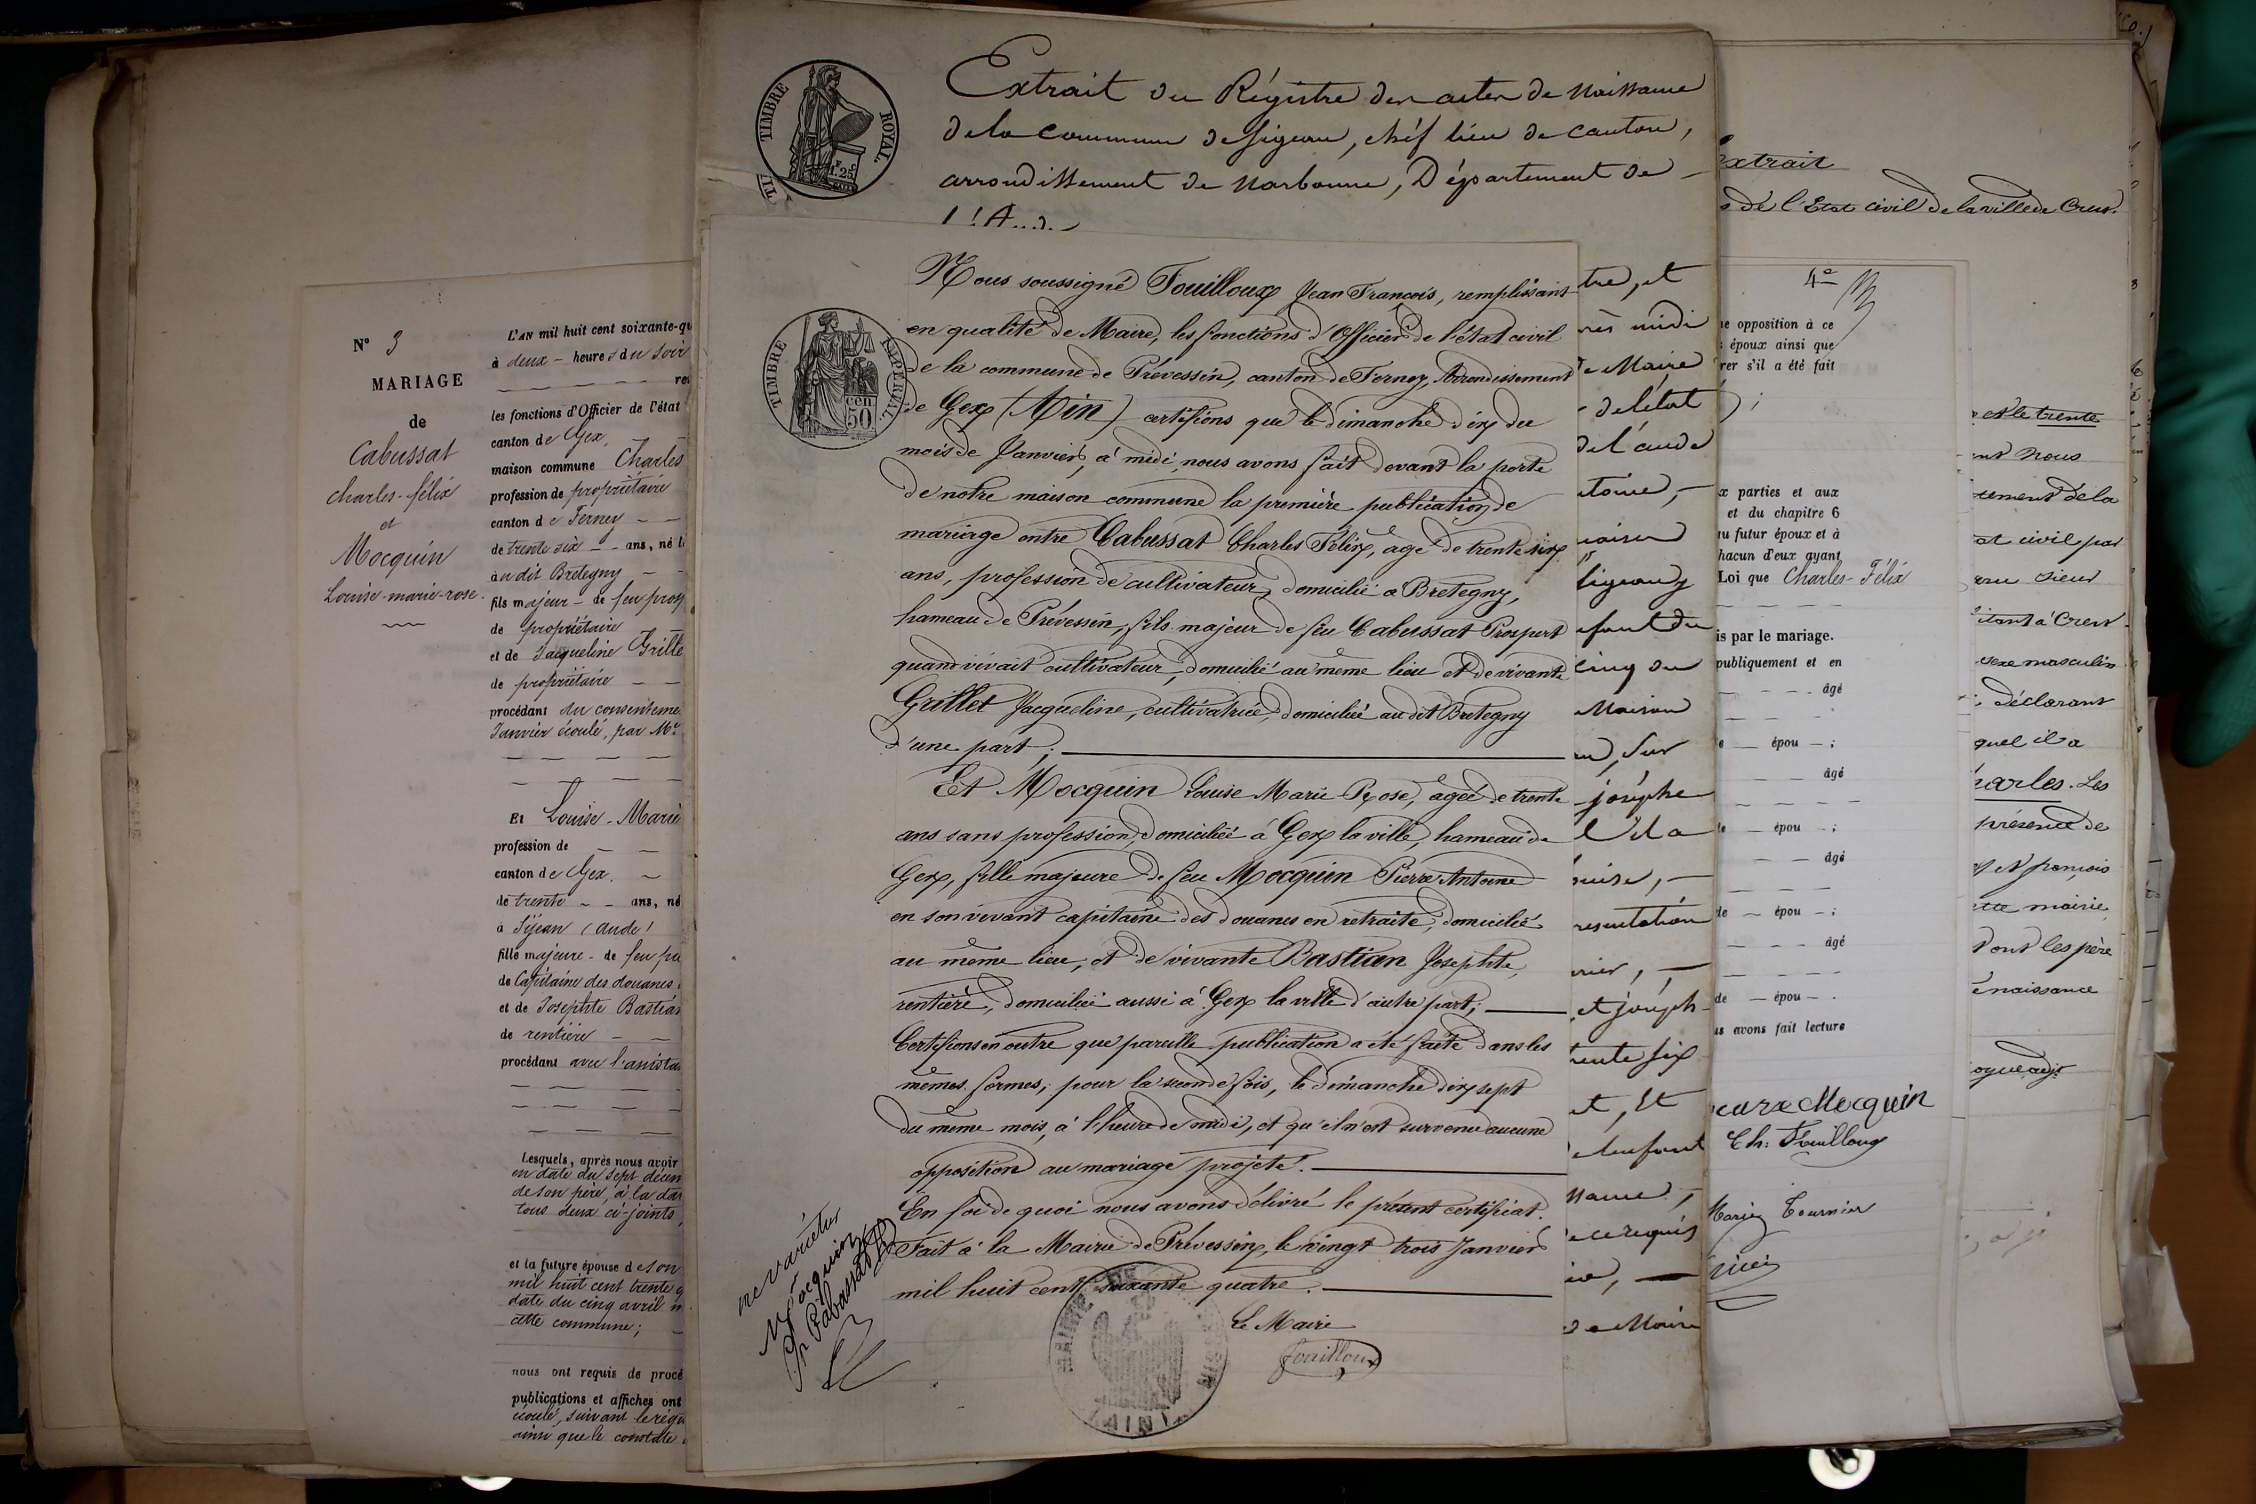 N° 3
MARIAGE
de
Cabussat
Charles-félix
et
Mocquin
Louise-marie-rose.
L'AN mil huit cent soixante-qu
à deux - heures du soir
les fonctions d'Officier de l'état
canton de Gex,
maison commune Charles
profession de propriétaire
canton de Ferney
de trente six ans, né l
au dit Bretegny
fils majeur - de feu prosp
de propriétaire
et de Jacqueline Grille
de propriétaire
procédant du consenteme
Janvier écoulé, par Mr
Et Louise-Marie
profession de
canton de Gex.
de trente ans, né
à Sijean (Aude)
fille majeure - de feu pie
de Capitaine des douanes
et de Josephte Bastian
de rentière
procédant avec l'assista
Lesquels, après nous avoir
en date du sept décem
de son père, à la dat
tous deux ci-joints,
et la future épouse de son
mil huit cent trente q
date du cinq avril m
cette commune;
nous ont requis de procé
publications et affiches ont
écoulé, suivant le régis
ainsi que le constate
TIMBRE ROYAL
1f. 25
Extrait du Régistre des actes de Naissance
de la Commune de Sigean, chéf lieu de Canton,
arrondissement de Narbonne, Département de
l'Aude
TIMBRE IMPERIAL
50 cen
Nous soussigné Fouilloux Jean François, remplissant
en qualité de Maire, les fonctions d'Officier de l'état civil
de la commune de Prévessin, canton de Ferney, Arrondissement
de Gex (Ain) certifions que le dimanche dix du
mois de Janvier, à midi, nous avons fait devant la porte
de notre maison commune la première publication de
mariage entre Cabussat Charles Félix, âgé de trente six
ans, profession de cultivateur, domicilié à Bretegny,
hameau de Prévessin, fils majeur de feu Cabussat Prospert
quand vivait cultivateur, domicilié au même lieu et de vivante
Grillet Jacqueline, cultivatrice, domiciliée au dit Bretegny
d'une part;
Et Mocquin Louise Marie Rose, agée de trente
ans sans profession, domiciliée à Gex la ville, hameau de
Gex, fille majeure de feu Mocquin Pierre Antoine
en son vivant capitaine des douanes en retraite, domicilié
au même lieu, et de vivante Bastian Josephte,
rentière, domiciliée aussi à Gex la ville d'autre part;
Certifions en outre que pareille publication a été faite dans les
mêmes formes, pour la seconde fois, le dimanche dix sept
du même mois, à l'heure de midi, et qu'il n'est survenu aucune
opposition au mariage projeté.
En foi de quoi nous avons délivré le présent certificat.
Fait à la Mairie de Prévessin, le vingt trois Janvier
mil huit cent soixante quatre.
Le Maire
Fouilloux
ne varietur
Mocquin
Cabussat
tre, et
midi
Maire
de l'état
de l'aude
Sigean
cinq du
Maison
sur
joséphe
il a
et joseph
trente six
et, Et
Maire
Extrait
de l'Etat civil de la ville de Crest.
4e
ne opposition à ce
époux ainsi que
rer s'il a été fait
x parties et aux
et du chapitre 6
au futur époux et à
hacun d'eux ayant
Loi que Charles-Félix
is par le mariage.
publiquement et en
âgé
épou ;
âgé
de épou ;
âgé
de épou ;
âgé
de épou .
us avons fait lecture
Mocquin
Ch: Fouilloux
Marie Tournier
et le trente
Nous
de la
civil par
sieur
à Crest
sexe masculin
Déclarant
quel il a
Charles. Les
présence de
et françois
mairie
dont les père
naissance